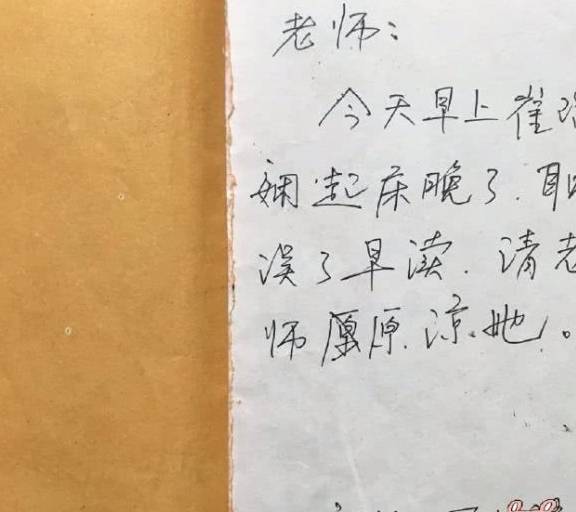 老师：
今天早上崔
娴起床晚了.耽
误了早渎.清老
师愿原.凉.她。